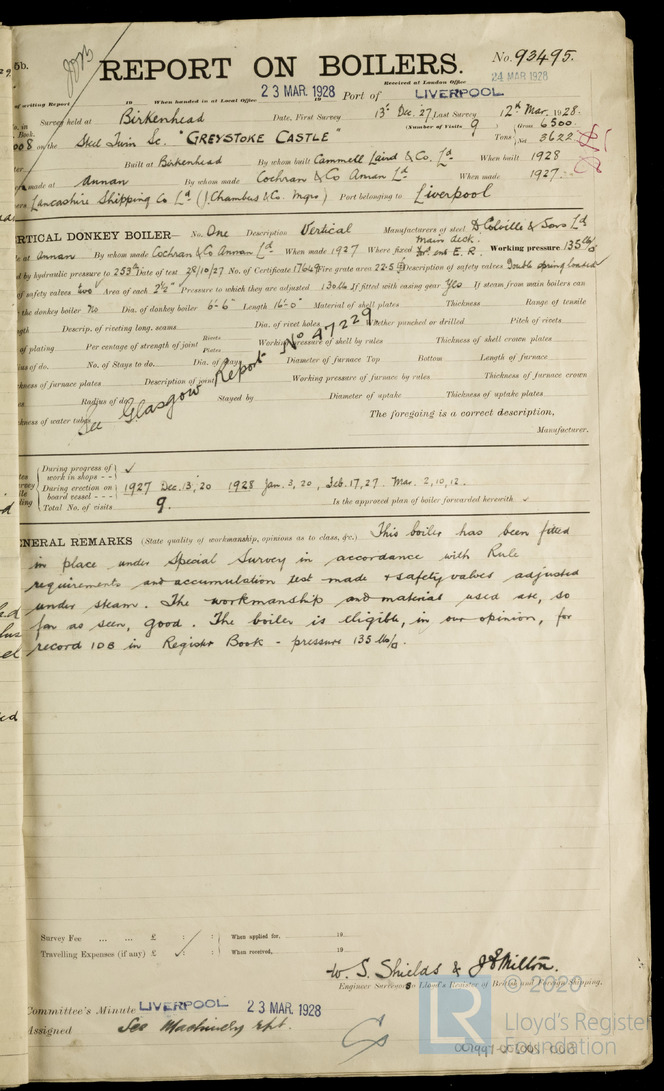 5b.
REPORT ON BOILERS.
No. 93495.
Received at London Office
24 MAR 1928
23 MAR. 1928
of writing Report 19 When handed in at Local Office 19 Port of LIVERPOOL
Survey held at Birkenhead Date, First Survey 13th Dec. 27 Last Survey 12th Mar. 1928.
Book. (Number of Visits 9 ) Gross 6500
on the Steel Twin Sc. "GREYSTOKE CASTLE" Tons Net 3622
Built at Birkenhead By whom built Cammell Laird & Co. Ld When built 1928
made at Annan By whom made Cochran & Co Annan Ld When made 1927
Lancashire Shipping Co Ld (J. Chambers & Co. Mgrs) Port belonging to Liverpool
RTICAL DONKEY BOILER— No. One Description Vertical Manufacturers of steel D. Colville & Sons Ld
at Annan By whom made Cochran & Co Annan Ld When made 1927 Where fixed main deck. For. end E.R. Working pressure 135 lb
d by hydraulic pressure to 253 Date of test 28/10/27 No. of Certificate 17649 Fire grate area 22.5 Description of safety valves Double spring loaded
of safety valves two Area of each 2½" Pressure to which they are adjusted 130 lb If fitted with casing gear Yes If steam from main boilers can
the donkey boiler No Dia. of donkey boiler 6'-6" Length 14'-0" Material of shell plates Thickness Range of tensile
Descrip. of riveting long. seams Dia. of rivet holes Whether punched or drilled Pitch of rivets
of plating Per centage of strength of joint Rivets Plates Working pressure of shell by rules Thickness of shell crown plates
No. of Stays to do. Dia. of stays Diameter of furnace Top Bottom Length of furnace
kness of furnace plates Description of joint Working pressure of furnace by rules Thickness of furnace crown
Radius of do. Stayed by Diameter of uptake Thickness of uptake plates
kness of water tubes The foregoing is a correct description,
See Glasgow Report No 47229
Manufacturer.
During progress of work in shops - - ✓
During erection on board vessel - - - 1927 Dec. 13, 20 1928 Jan. 3, 20, Feb. 17, 27. Mar. 2, 10, 12.
Total No. of visits 9. Is the approved plan of boiler forwarded herewith ✓
NERAL REMARKS (State quality of workmanship, opinions as to class, &c.) This boiler has been fitted
in place under Special Survey in accordance with Rule
requirements and accumulation test made & safety valves adjusted
under steam. The workmanship and material used are, so
far as seen, good. The boiler is eligible, in our opinion, for
record 1DB in Register Book - pressure 135 lb/□.
Survey Fee ... ... £ : : When applied for, 19
Travelling Expenses (if any) £ : : When received, 19
W. S. Shields & J E Milton.
Engineer Surveyors to Lloyd's Register of British and Foreign Shipping.
Committee's Minute LIVERPOOL 23 MAR. 1928
Assigned See Machinery rpt.
LR
© 2020
Lloyd's Register
Foundation